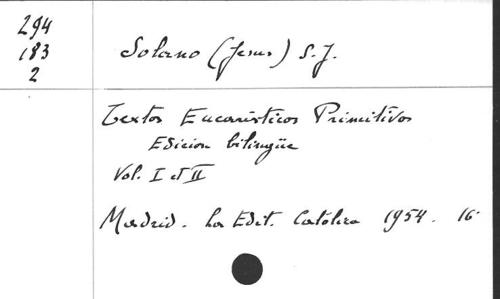 294
183
2
Solano (Jesus) S.J.
Textos Eucarísticos Primitivos
Edicion bilingüe
Vol. I et II
Madrid. La Edit. Católica 1954. 16